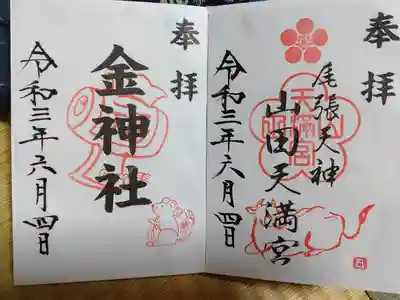 奉拝
尾張天神
山田天満宮
令和三年六月四日
奉拝
金神社
令和三年六月四日
天満宮
山
田